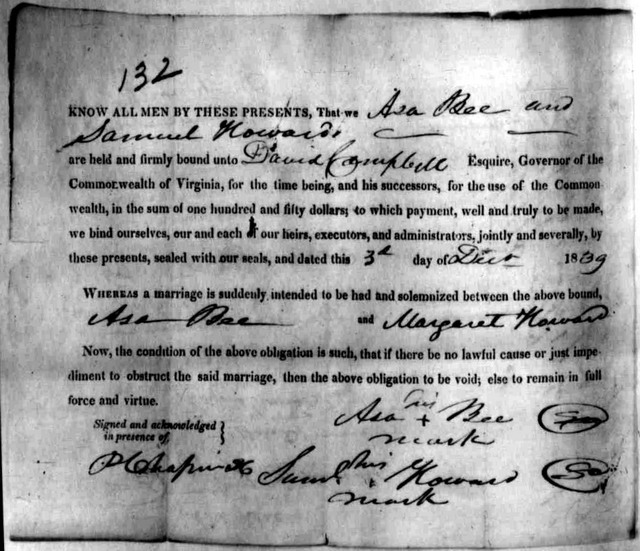 132
KNOW ALL MEN BY THESE PRESENTS, That we Asa Bee and
Samuel Howard
are held and firmly bound unto David Campbell Esquire, Governor of the
Commonwealth of Virginia, for the time being, and his successors, for the use of the Common
wealth, in the sum of one hundred and fifty dollars; to which payment, well and truly to be made,
we bind ourselves, our and each of our heirs, executors, and administrators, jointly and severally, by
these presents, sealed with our seals, and dated this 3d day of 1839
WHEREAS a marriage is suddenly intended to be had and solemnized between the above bound,
Asa Bee and Margaret Howard
Now, the condition of the above obligation is such, that if there be no lawful cause or just impe-
diment to obstruct the said marriage, then the above obligation to be void; else to remain in full
force and virtue.
Signed and acknowledged }
in presence of, }
his
Asa + Bee
mark
his
Saml + Howard
mark